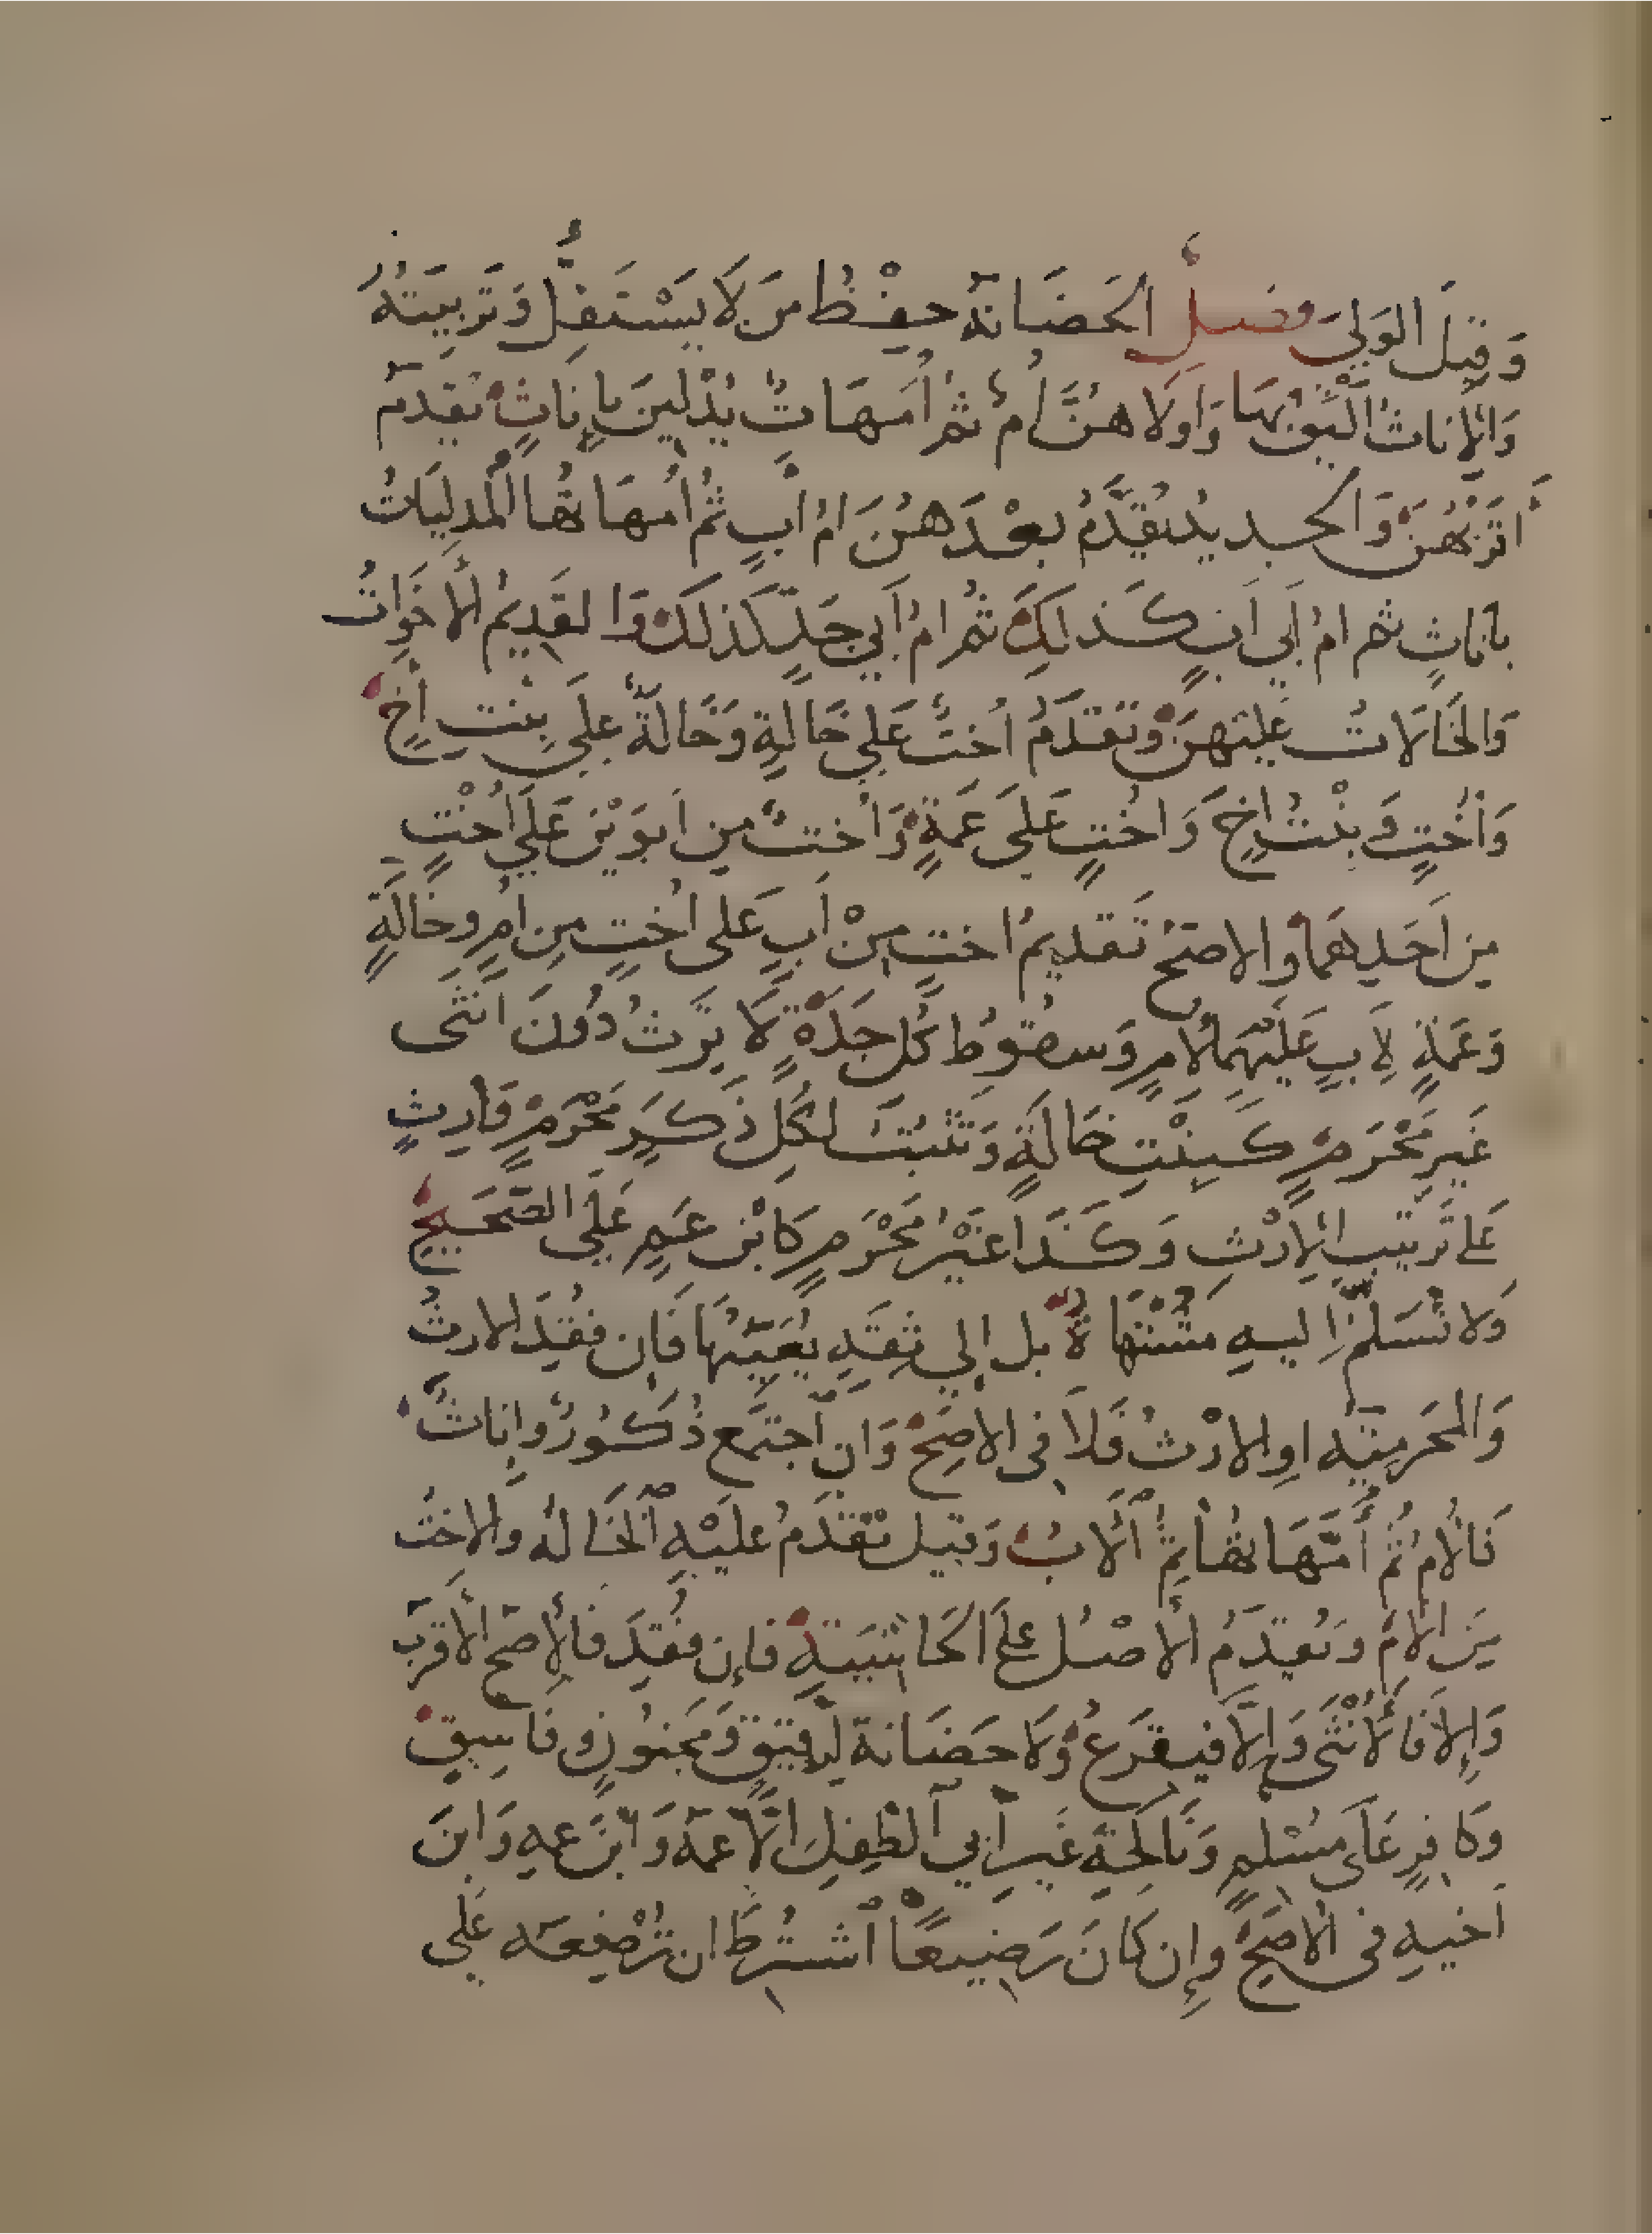 وَقِيلَ الوَلِيّ فصل الحَضَانَةُ حِفْظُ مَن لَا يَسْتَقِلُّ وَتَرْبِيَتُهُ
وَالإِنَاثُ أَلْيَقُ بِهَا وَأُولَاهُنَّ أُمٌّ ثُمَّ أُمَهَاتٌ يُدْلِينَ بِإِنَاثٍ تُقَدَّمُ
أَقْرَبُهُنَّ وَالجديدُ تُقَدَّمُ بَعْدَهُنَّ أمُ أَبٍ ثُمَّ أُمهَاتُهَا الْمُدْلِيَاتُ
بإناثٍ ثم أمُ أَبِي أَبٍ كَذلِكَ ثُمَّ امُ أَبِي جَدٍّ كَذلكَ وَالقَدِيمُ الأَخَوَاتُ
وَالخَالَاتُ عَلَيْهِنَّ وَتُقَدَّمُ أُختٌ عَلَى خَالَةٍ وَخَالةٌ عَلَى بِنْتِ أَخٍ
وَأُخْتٍ وَبِنْتُ أخٍ وَأُخْتٍ عَلَى عَمَةٍ وَأُختٌ مِن أَبَوَيْنِ عَلَى أُخْتٍ
مِن أَحَدِهِمَا وَالاصَحُّ تَقدِيمُ أختٍ مِنْ أَبٍ عَلى أُخْتٍ مِن أُمٍ وخَالَةٍ
وَعَمَةٍ لِأَبٍ عَلَيْهِمَا لأمٍ وَسقُوطُ كُل جَدَةٍ لَا تَرِثُ دُونَ أنثَى
غَيرِ مَحْرَمٍ كَبِنْتِ خَالَةٍ وَتَثْبُتُ لكُلِ ذَكَرٍ مَحْرَمٍ وَارِثٍ
عَلى تَرْتيبِ الإِرْثِ وَكَذَا غَيْرُ مَحْرَمٍ كَابْنِ عَمٍ عَلَى الصَّحِيحِ
وَلا تُسَلَّمُ إِلَيهِ مُشْتَهَاةٌ بل إلي ثِقَةٍ يُعَيِّنُهَا فَإن فُقِدَ الارثُ
وَالمَحْرَمِيَّة اوِ الارْثُ فَلَا فى الاصَحِّ وَانِ اجتَمَع ذُكُورٌ وَإنَاثٌ
فَالأم ثُم أُمَّهَاتُهَا ثُمَّ الْأَبُ وَقيل تُقَدَّمُ عَلَيْهِ الخَالَةُ وَالاختُ
مِنَ الأُمِّ وَتُقَدَّمُ الأَصْلُ عَلَى الحَاشِيَةِ فَإِن فُقِدَ فَالأَصحُ الأَقْرَبُ
وَإِلا فَالأُنْثَى وَإِلَّا فَيُقْرَعُ وَلَا حَضَانةَ لِرَقِيقٍ وَمَجنُونٍ وفَاسِقٍ
وَكَافِرٍ عَلَى مُسْلمٍ وَنَاكِحَةِ غَيرِ أَبِي الطِفلِ إِلَّا عمَهُ وَابْنَ عمِهِ وَابنَ
أخيهِ فى الأصَحِّ وإن كَانَ رَضِيعًا اشتُرِطَ ان تُرْضِعَه عَلَي